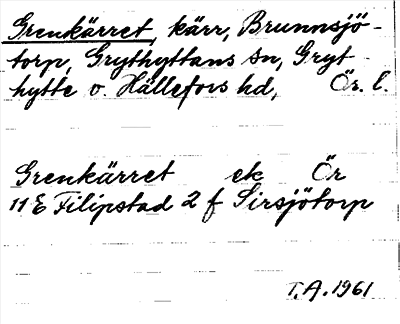 Grenkärret, kärr, Brunnsjö-
torp, Grythyttans sn, Gryt-
hytte o. Hällefors hd, Ör. l.
Grenkärret ek Ör
11 E Filipstad 2 f Sirsjötorp
T.A. 1961